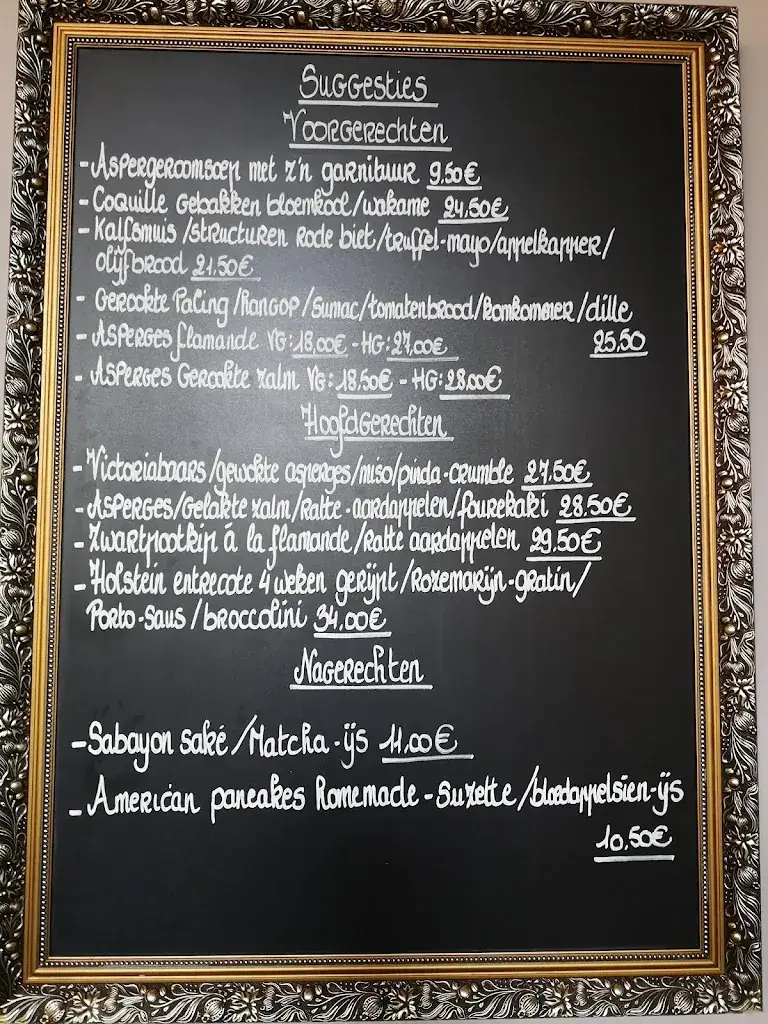 Suggesties
Voorgerechten
- Aspergeroomsoep met z'n garnituur 9.50€
- Coquille Gebakken bloemkool/wakame 24,50€
- Kalfsmuis/structuren rode biet/truffel-mayo/appelkapper/
olijfbrood 21.50€
- Gerookte Paling/Hangop/Sumac/tomatenbrood/komkommer/dille
25,50
- Asperges flamande VG:18,00€ - HG:27,00€
- Asperges Gerookte zalm VG:18.50€ - HG:28.00€
Hoofdgerechten
- Victoriabaars/gewokte asperges/miso/pinda-crumble 27.50€
- Asperges/Gelakte zalm/Ratte-aardappelen/fourekaki 28.50€
- Zwartpootkip á la flamande/Ratte aardappelen 29.50€
- Holstein entrecote 4 weken gerijpt/Rozemarijn-gratin/
Porto-saus/broccolini 34,00€
Nagerechten
- Sabayon saké/Matcha-ijs 11,00€
- American pancakes Homemade - Suzette/bloedappelsien-ijs
10,50€